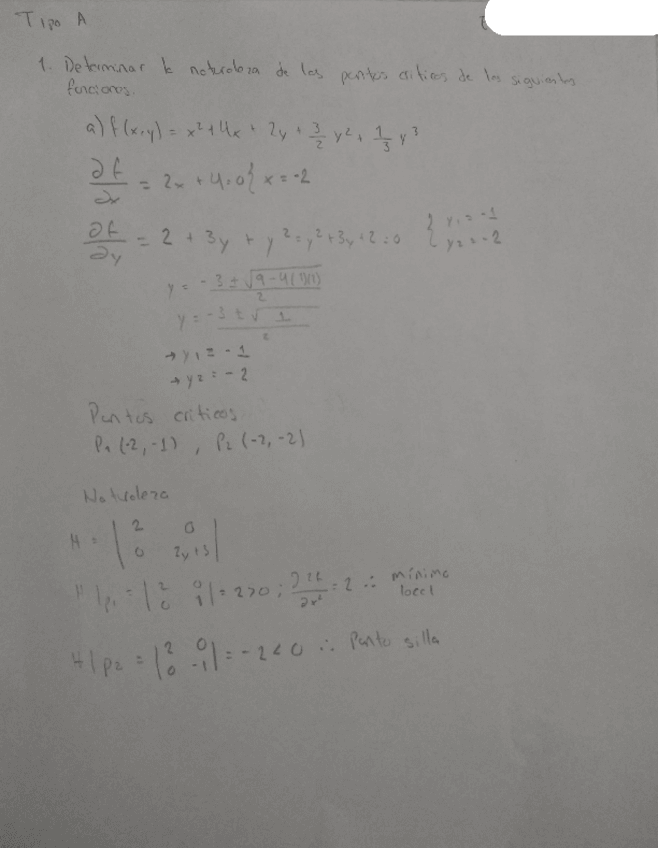 Tipo A
1. Determinar la naturaleza de los puntos criticos de las siguientes
funciones.
a) f(x,y) = x² + 4x + 2y + 3/2 y² + 1/3 y³
∂f/∂x = 2x + 4 = 0 { x = -2
∂f/∂y = 2 + 3y + y² = y² + 3y + 2 = 0 { y₁ = -1 y₂ = -2
y = -3 ± √9 - 4(1)(1) / 2
y = -3 ± √1 / 2
→ y₁ = -1
→ y₂ = -2
Puntos criticos
P₁ (-2, -1) , P₂ (-2, -2)
Naturaleza
H = | 2 0 |
| 0 2y+3 |
H|p₁ = | 2 0 | = 2 > 0 ; ∂²f/∂x² = 2 ∴ minimo local
| 0 1 |
H|p₂ = | 2 0 | = -2 < 0 ∴ Punto silla
| 0 -1 |